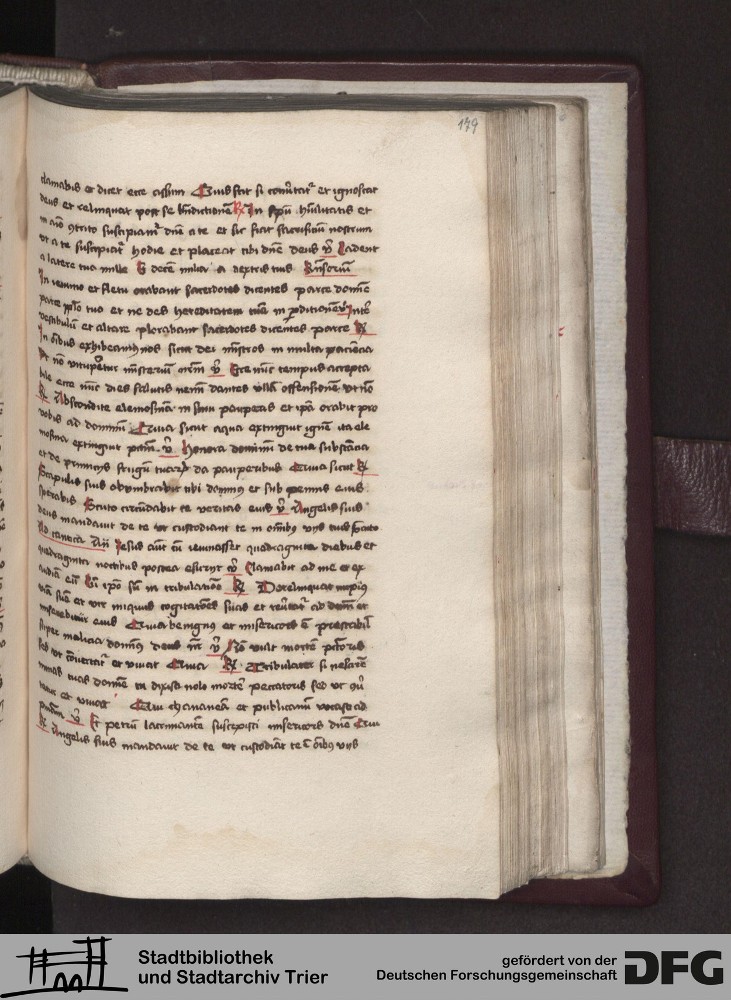 179
clamabis et dicet ecce assum Quis scit si cōu͛tat͛ et ignoscat
deus et relinquat post se bn̄dictionē R̶ In spū hūilitatis et
in aīo 9trito suscipiam͛ dn̄e a te et sic fiat sacrificiū nostrum
ut a te suscipiat͛ hodie et placeat tibi dn̄e deus v̄ Cadent
a latere tuo mille et decē milia a dextris tuis
In ieiunio et fletu orabant sacerdotes dicentes parce domīe
parce pplo tuo et ne des hereditatem tuā in ꝑditionē v̄ Int͛
vestibulū et altare plorabant sacerdotes dicentes parce R̶
In oībus exhibeamus nos sicut dei mīstros in multa paciēcia
Ut nō vituꝑet͛ misteriū nr̄m v̄ Ecce nūc tempus accepta
bile ecce nūc dies salutis nemī dantes ullā offensionē ut nō
R̶ Abscondite elemosinā in sinu pauperis et ip̄a orabit pro
vobis ad dominū Quia sicut aqua extinguit ignē ita ele
mosina extinguit pctm̄ v̄ Honora dominū de tua substācia
et de primicijs frugū tuarꝝ da pauperibus Quia sicut R̶
Scapulis suis obumbrabit tibi dominus et sub pennis eius
sperabis Scuto circūdabit te veritas eius v̄ Angelis suis
deus mandauit de te ut custodiant te in omībus vijs tuis Scuto
Ad cantica An̄ Iesus aūt cū ieiunasset quadraginta diebus et
quadraginta noctibus postea esurijt v̄ Clamabit ad me et ex
audiā eū Cū ip̄o sū in tribulatiōe R̶ Derelinquat impius
viā suā et vir iniquus cogitatōes suas et reu͛tat͛ ad dn̄m et
miserebit͛ eius Quia benignus et misericors ē prestabil
super malicia dominus deus nr̄ v̄ Nō vult mortē pctōris
sed ut cōuertat͛ et viuat Quia R̶ Tribularer si nescirē
mīas tuas domīe tu dixisti nolo mortē peccatoris sed ut
et viuat Qui chananeā et publicanū vocasti ad
pn̄iam v̄ Et petrū lacrimantē suscepisti misericors dn̄e Qui
R̶ Angelis suis mandauit de te ut custodiāt te ī oībus vijs
Stadtbibliothek
und Stadtarchiv Trier
gefördert von der
Deutschen Forschungsgemeinschaft
DFG